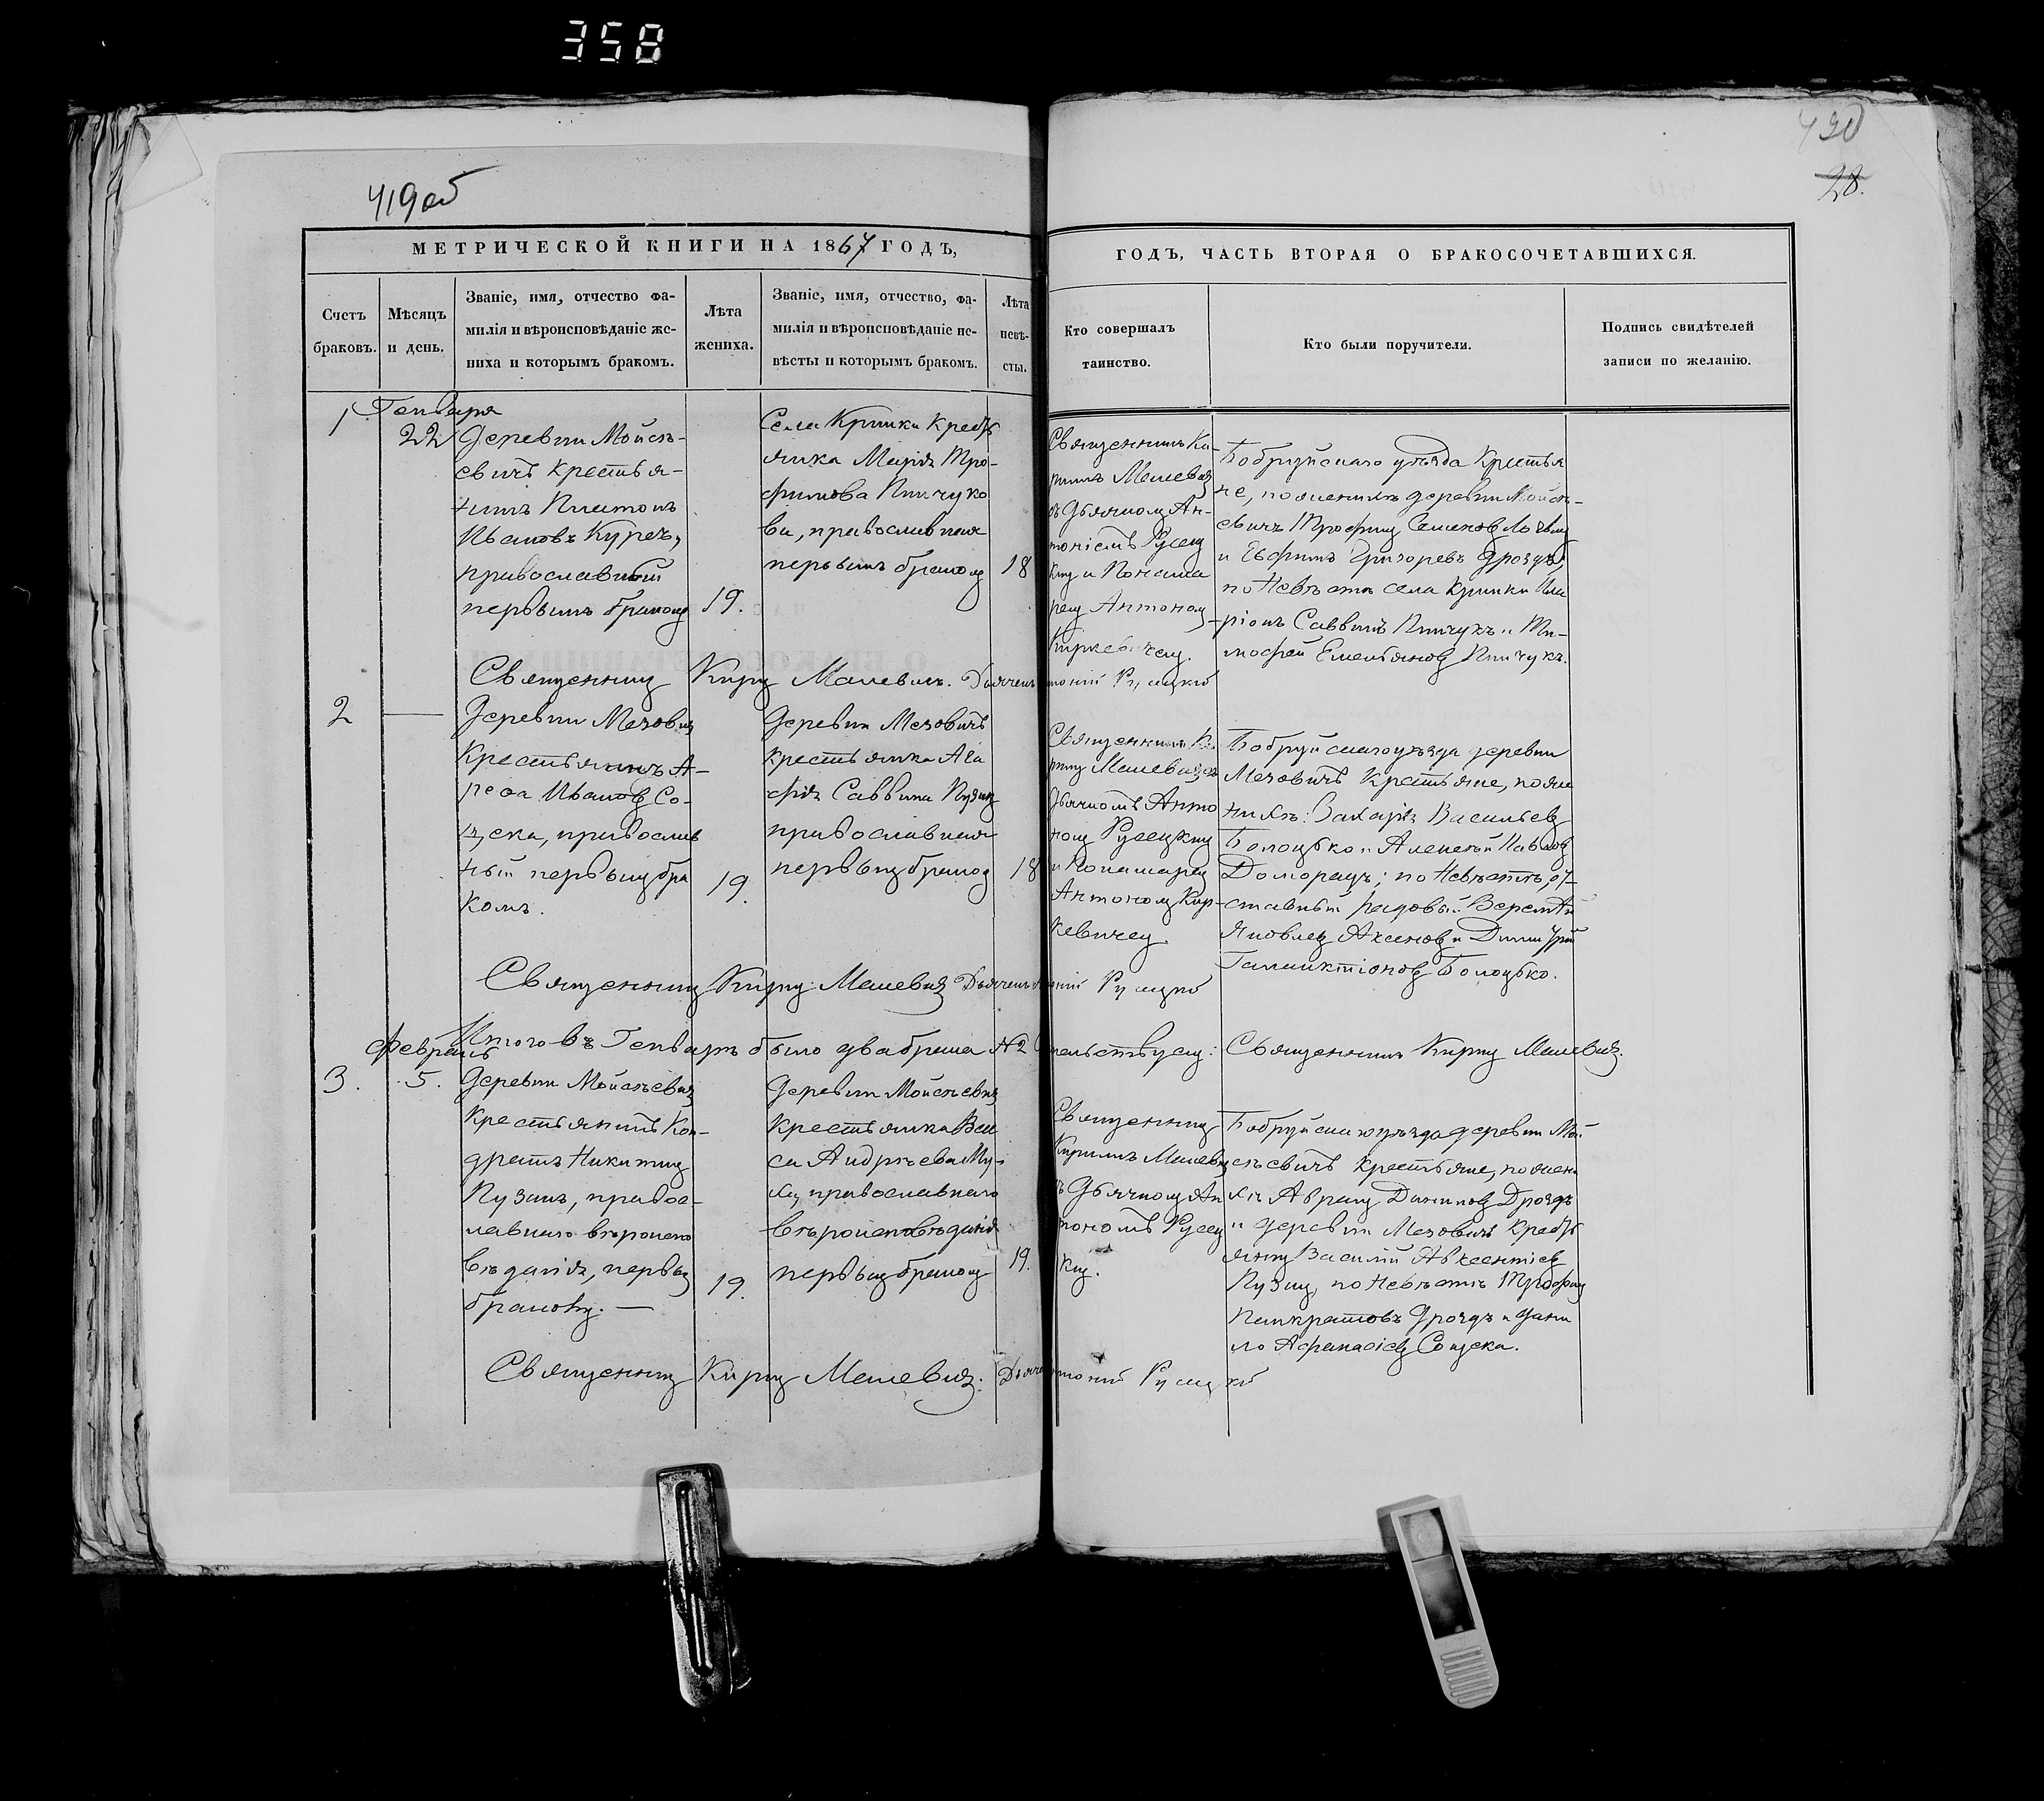 358
419об
420
28.
МЕТРИЧЕСКОЙ КНИГИ НА 1867 ГОДЪ,
Счетъ
браковъ.
Мѣсяцъ
и день.
Званіе, имя, отчество фа-
милія и вѣроисповѣданіе же-
ниха и которымъ бракомъ.
Лѣта
жениха.
Званіе, имя, отчество, фа-
милія и вѣроисповѣданіе не-
вѣсты и которымъ бракомъ.
Лѣта
невѣ-
сты.
ГОДЪ, ЧАСТЬ ВТОРАЯ О БРАКОСОЧЕТАВШИХСЯ.
Кто совершалъ
таинство.
Кто были поручители.
Подпись свидѣтелей
записи по желанію.
1.
Генваря
22
Деревни Мойсѣ-
евичъ крестья-
нинъ Платонъ
Ивановъ Куречъ,
православный
первымъ бракомъ
19.
Села Кринки кресть
янка Марія Тро-
фимова Пинчуко
ва, православная
первымъ бракомъ
18
Священникъ Ки-
риллъ Малевичъ
съ Дьячкомъ Ан-
тоніемъ Русец
кимъ и Понама
ремъ Антономъ
Киркевичемъ.
Бобруйскаго уѣзда крестья
не, по женихѣ деревни Мойсѣ-
евичъ Трофимъ Семеновъ
и Евфимъ Григорьевъ Дроздъ,
по невѣстѣ села Кринки Ила
ріонъ Саввинъ Пинчукъ и Ти-
мофей Емельяновъ Пинчукъ.
Священникъ Кирилъ Малевичъ. Дьячекъ Антоній Русецкій
2
—
Деревни Мезовичъ
крестьянинъ А-
реѳа Ивановъ Со-
цска, православ
ный первымъ бра
комъ.
19.
Деревни Мезовичъ
крестьянка Ага
фія Саввина Пузик
православная
первымъ бракомъ
18
Священникъ Ки
рилъ Малевичъ съ
Дьячкомъ Анто
номъ Русецкимъ
и Понамаремъ
Антономъ Кир-
кевичемъ.
Бобруйскаго уѣзда деревни
Мезовичъ крестьяне, по же
нихѣ: Захарія Васильевъ
Болоцько и Алексѣй Павловъ
Доморацъ; по невѣстѣ, от-
ставный рядовый Веремѣй
Яковлевъ Аксеновъ и Димитрій
Галактіоновъ Болоцько.
Священникъ Кирилъ Малевичъ Дьячекъ Антоній Русецкій
Итого въ Генварѣ было два брака №2 Священникъ Кирилъ Малевичъ.
Февраль
3.
5.
Деревни Мойсѣевичъ
крестьянинъ Кон-
дратъ Никитинъ
Пузикъ, правос-
лавнаго вѣроиспо
вѣданія, первымъ
бракомъ. —
19.
Деревни Мойсѣевичъ
крестьянка Вас
са Андрѣева Му-
ха, православнаго
вѣроисповѣданія
первымъ бракомъ
19.
Священникъ
Кириллъ Малевичъ
съ Дьячкомъ Ан
тономъ Русец
кимъ.
Бобруйскаго уѣзда деревни Мой
сѣевичъ крестьяне, по жени
хѣ Аврамъ Даниловъ Дроздъ
и деревни Мезовичъ кресть
янинъ Василій Авксентіевъ
Пузикъ, по невѣстѣ Трофимъ
Панкратовъ Дроздъ и Дани
ло Афанасіевъ Соцска.
Священникъ Кирилъ Малевичъ. Дьячекъ Антоній Русецкій